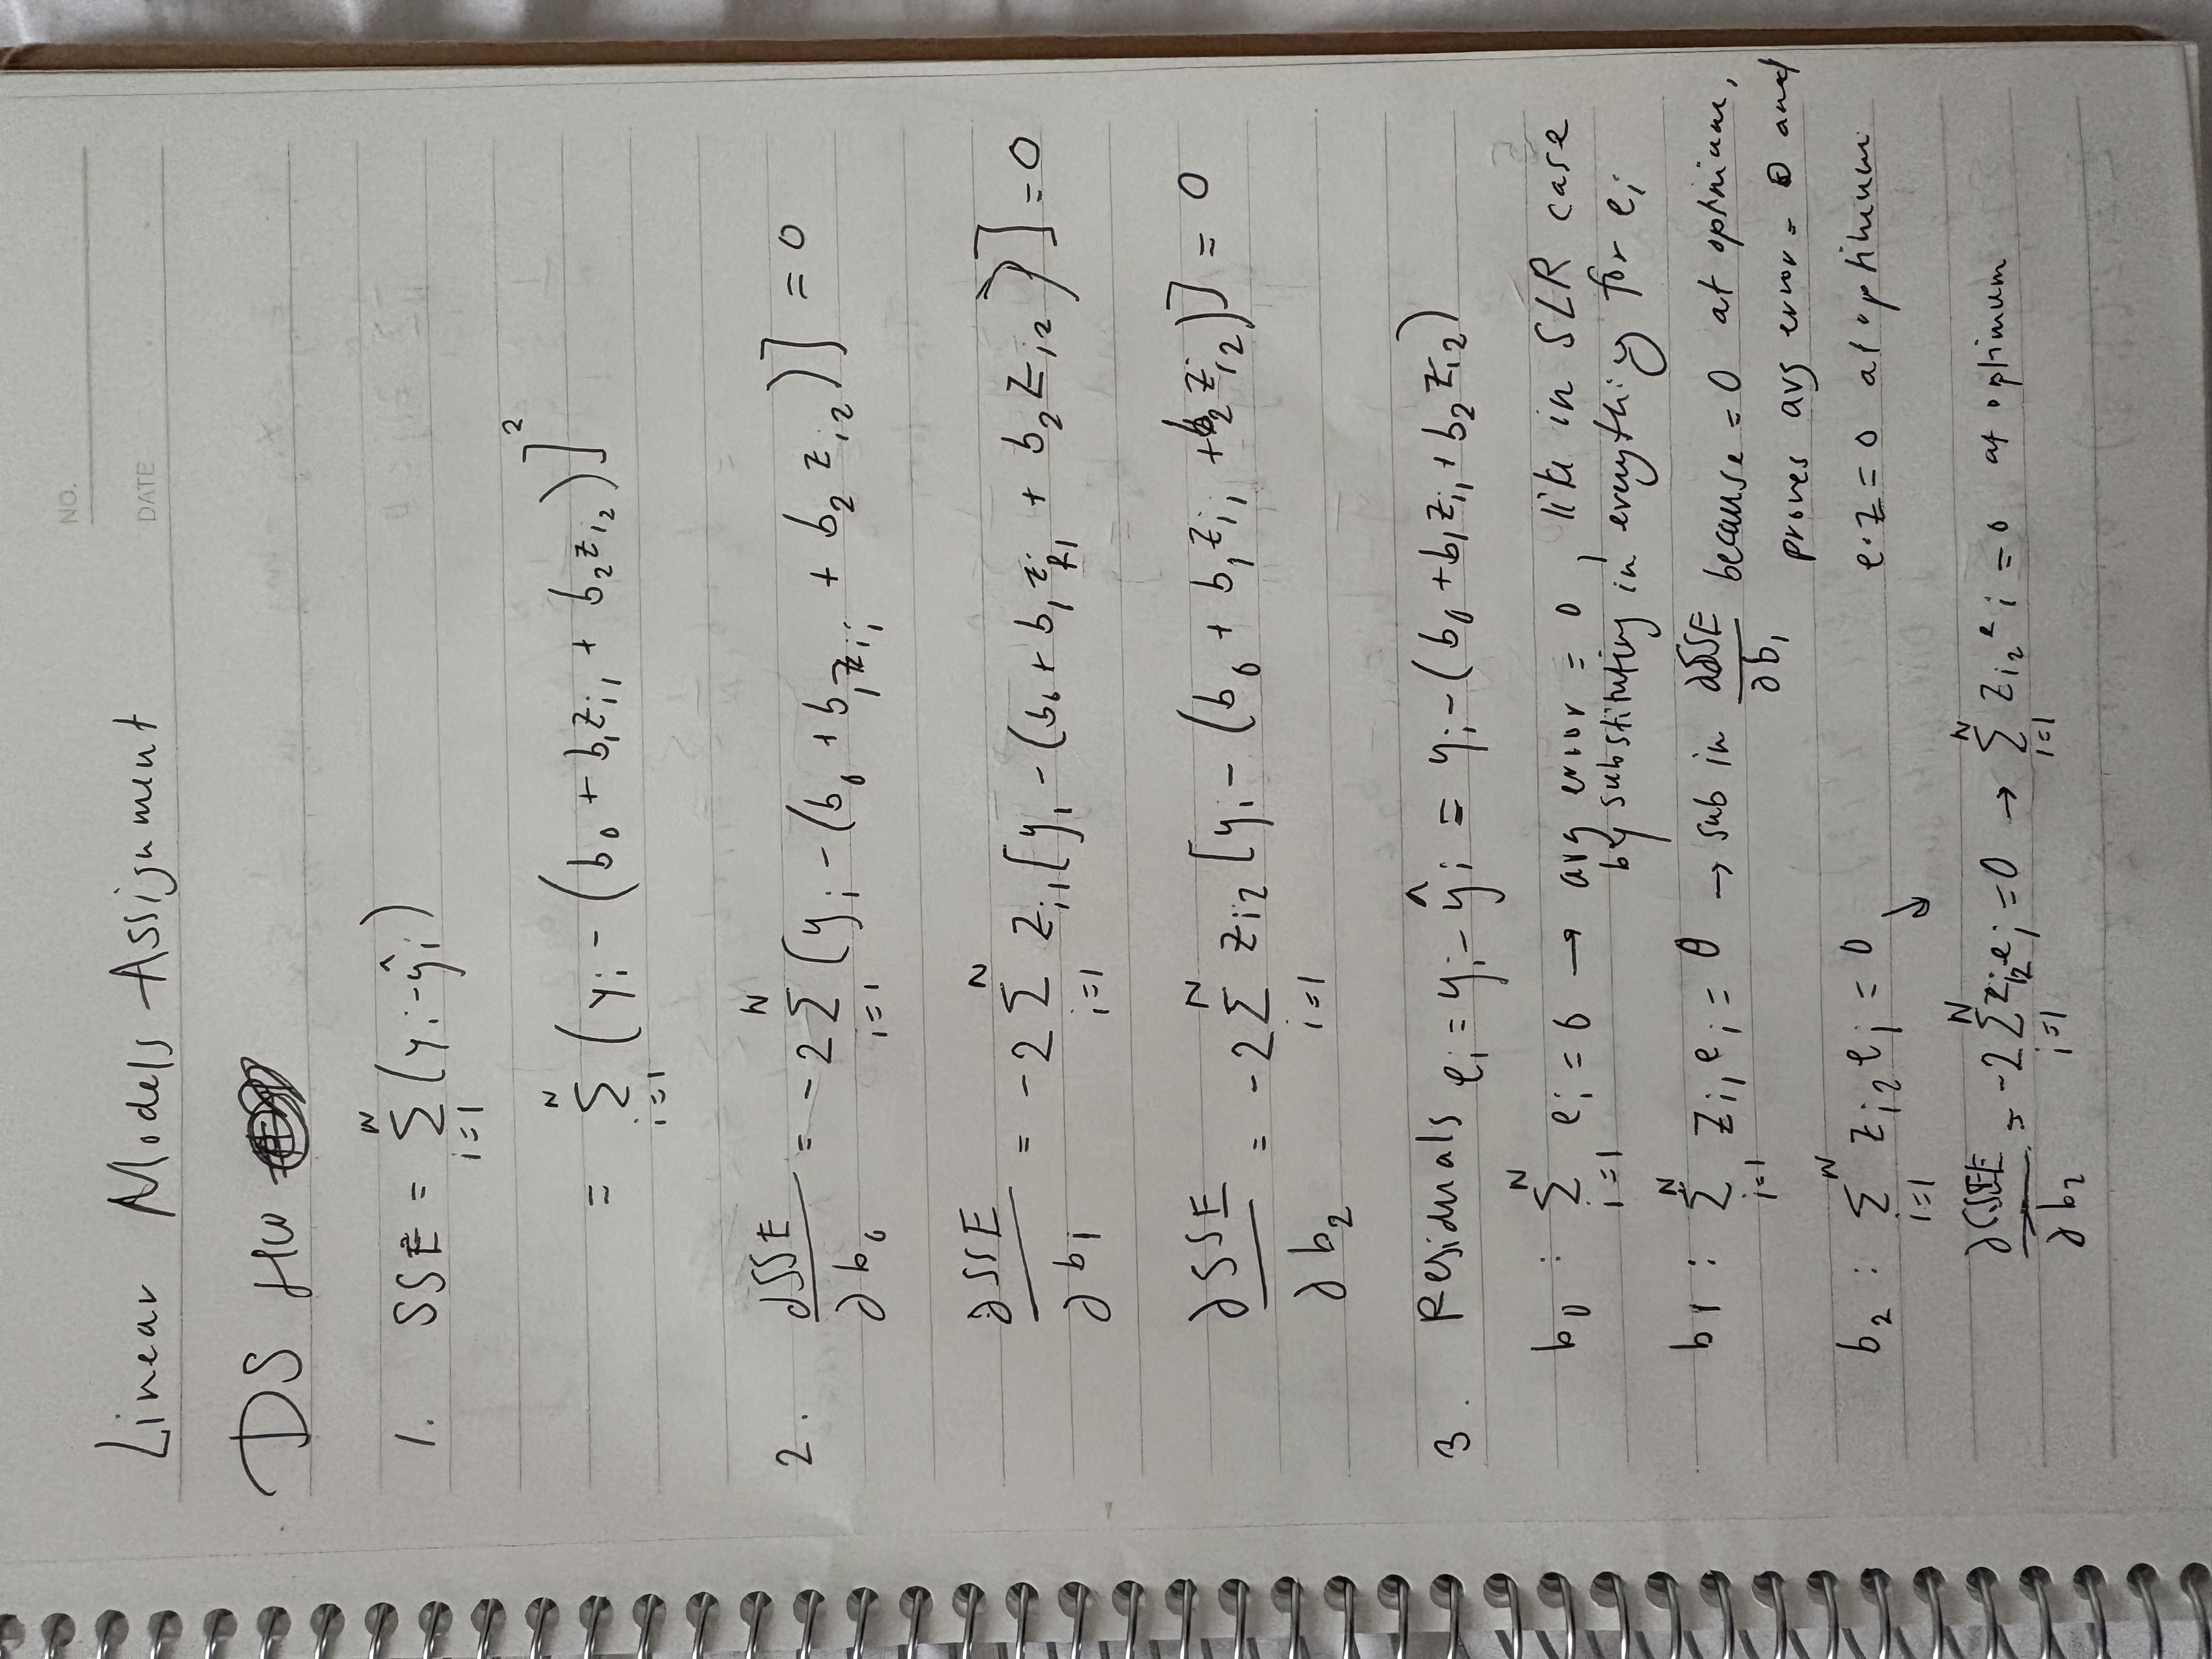 NO.
DATE
Linear Models Assignment
DS HW
1. SSE = Σ_{i=1}^{N} (y_i - ŷ_i)
= Σ_{i=1}^{N} (y_i - (b_0 + b_1 z_{i1} + b_2 z_{i2})]^2
2. ∂SSE/∂b_0 = -2 Σ_{i=1}^{N} (y_i - (b_0 + b_1 z_{i1} + b_2 z_{i2})] = 0
∂SSE/∂b_1 = -2 Σ_{i=1}^{N} z_{i1} [y_i - (b_0 + b_1 z_{i1} + b_2 z_{i2})] = 0
∂SSE/∂b_2 = -2 Σ_{i=1}^{N} z_{i2} [y_i - (b_0 + b_1 z_{i1} + b_2 z_{i2})] = 0
3. Residuals e_i = y_i - ŷ_i = y_i - (b_0 + b_1 z_{i1} + b_2 z_{i2})
b_0 : Σ_{i=1}^{N} e_i = 0 → avg error = 0, like in SLR case
by substituting in everything for e_i
b_1 : Σ_{i=1}^{N} z_{i1} e_i = 0 → sub in ∂SSE/∂b_1 because = 0 at optimium,
proves avg error = 0 and
b_2 : Σ_{i=1}^{N} z_{i2} e_i = 0
e·z = 0 at optimum
↓
∂SSE/∂b_2 = -2 Σ_{i=1}^{N} z_{i2} e_i = 0 → Σ_{i=1}^{N} z_{i2} e_i = 0 at optimum